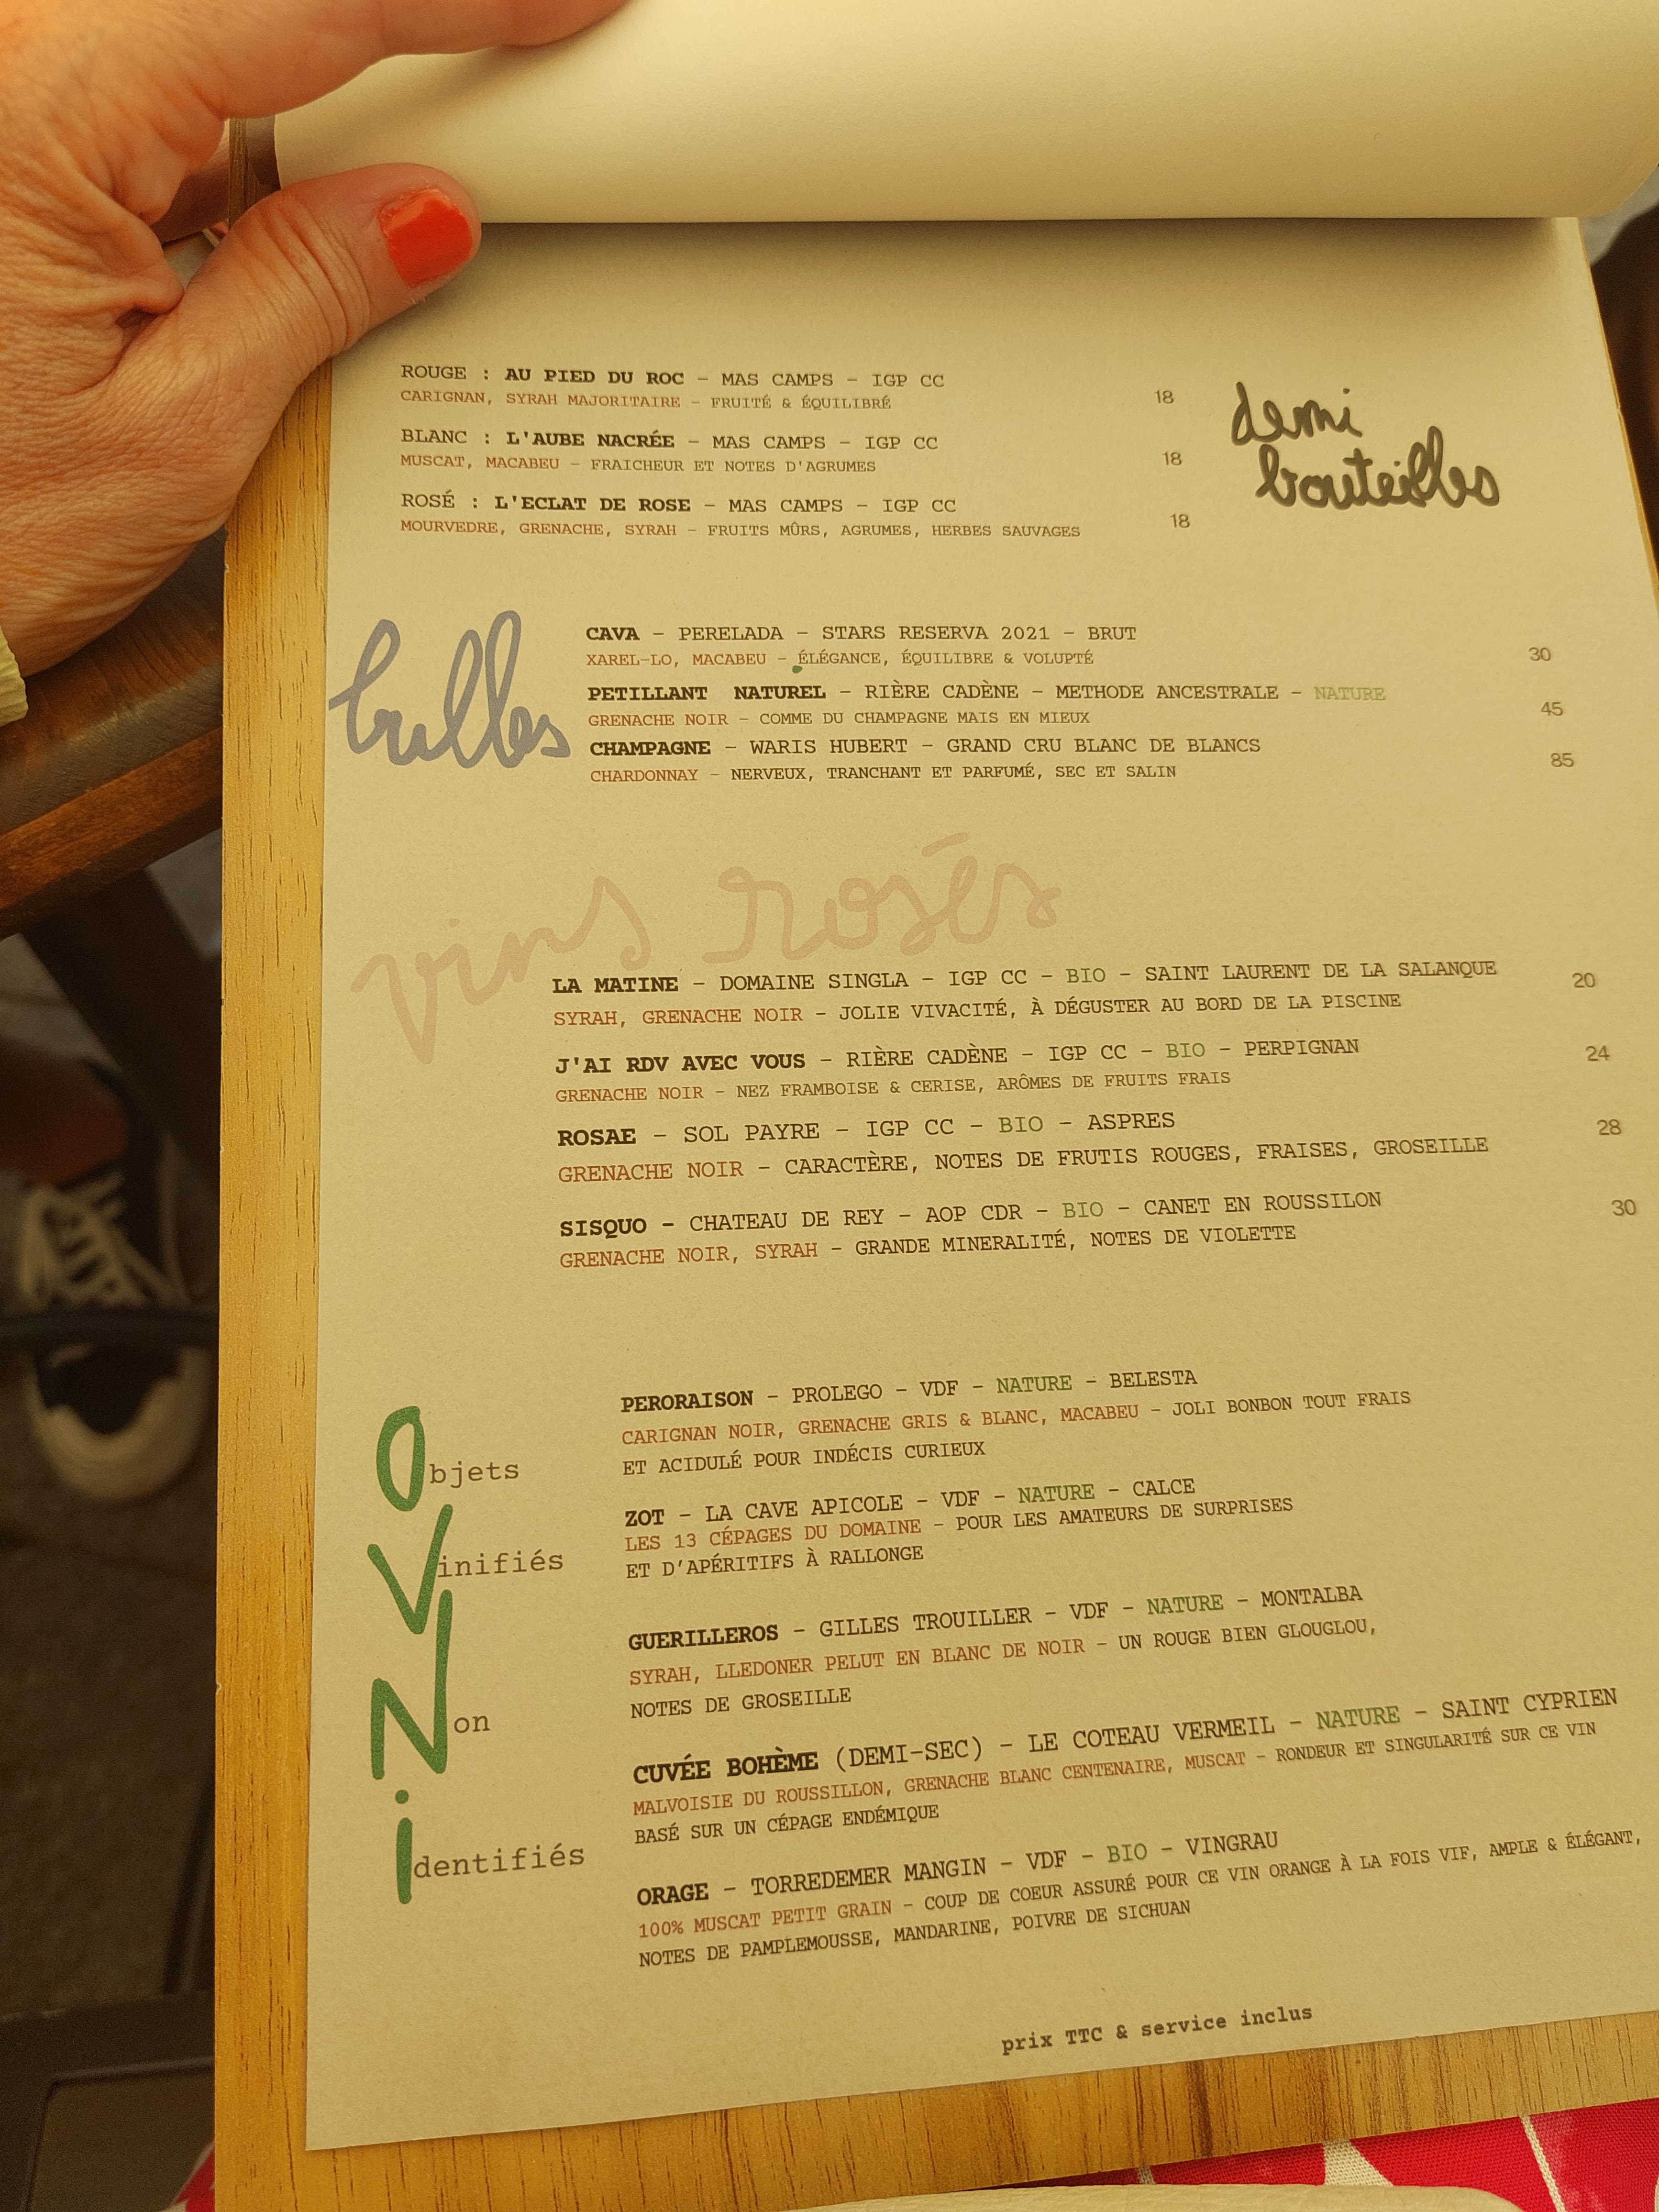 ROUGE : AU PIED DU ROC – MAS CAMPS – IGP CC
CARIGNAN, SYRAH MAJORITAIRE – FRUITÉ & ÉQUILIBRÉ 18
BLANC : L'AUBE NACRÉE – MAS CAMPS – IGP CC
MUSCAT, MACABEU – FRAICHEUR ET NOTES D'AGRUMES 18
ROSÉ : L'ECLAT DE ROSE – MAS CAMPS – IGP CC
MOURVEDRE, GRENACHE, SYRAH – FRUITS MÛRS, AGRUMES, HERBES SAUVAGES 18
demi
bouteilles
bulles
CAVA – PERELADA – STARS RESERVA 2021 – BRUT
XAREL-LO, MACABEU – ÉLÉGANCE, ÉQUILIBRE & VOLUPTÉ 30
PETILLANT NATUREL – RIÈRE CADÈNE – METHODE ANCESTRALE – NATURE
GRENACHE NOIR – COMME DU CHAMPAGNE MAIS EN MIEUX 45
CHAMPAGNE – WARIS HUBERT – GRAND CRU BLANC DE BLANCS
CHARDONNAY – NERVEUX, TRANCHANT ET PARFUMÉ, SEC ET SALIN 85
vins rosés
LA MATINE – DOMAINE SINGLA – IGP CC – BIO – SAINT LAURENT DE LA SALANQUE 20
SYRAH, GRENACHE NOIR – JOLIE VIVACITÉ, À DÉGUSTER AU BORD DE LA PISCINE
J'AI RDV AVEC VOUS – RIÈRE CADÈNE – IGP CC – BIO – PERPIGNAN 24
GRENACHE NOIR – NEZ FRAMBOISE & CERISE, ARÔMES DE FRUITS FRAIS
ROSAE – SOL PAYRE – IGP CC – BIO – ASPRES 28
GRENACHE NOIR – CARACTÈRE, NOTES DE FRUTIS ROUGES, FRAISES, GROSEILLE
SISQUO – CHATEAU DE REY – AOP CDR – BIO – CANET EN ROUSSILON 30
GRENACHE NOIR, SYRAH – GRANDE MINERALITÉ, NOTES DE VIOLETTE
Objets
Vinifiés
Non
identifiés
PERORAISON – PROLEGO – VDF – NATURE – BELESTA
CARIGNAN NOIR, GRENACHE GRIS & BLANC, MACABEU – JOLI BONBON TOUT FRAIS
ET ACIDULÉ POUR INDÉCIS CURIEUX
ZOT – LA CAVE APICOLE – VDF – NATURE – CALCE
LES 13 CÉPAGES DU DOMAINE – POUR LES AMATEURS DE SURPRISES
ET D'APÉRITIFS À RALLONGE
GUERILLEROS – GILLES TROUILLER – VDF – NATURE – MONTALBA
SYRAH, LLEDONER PELUT EN BLANC DE NOIR – UN ROUGE BIEN GLOUGLOU,
NOTES DE GROSEILLE
CUVÉE BOHÈME (DEMI-SEC) – LE COTEAU VERMEIL – NATURE – SAINT CYPRIEN
MALVOISIE DU ROUSSILLON, GRENACHE BLANC CENTENAIRE, MUSCAT – RONDEUR ET SINGULARITÉ SUR CE VIN
BASÉ SUR UN CÉPAGE ENDÉMIQUE
ORAGE – TORREDEMER MANGIN – VDF – BIO – VINGRAU
100% MUSCAT PETIT GRAIN – COUP DE COEUR ASSURÉ POUR CE VIN ORANGE À LA FOIS VIF, AMPLE & ÉLÉGANT,
NOTES DE PAMPLEMOUSSE, MANDARINE, POIVRE DE SICHUAN
prix TTC & service inclus